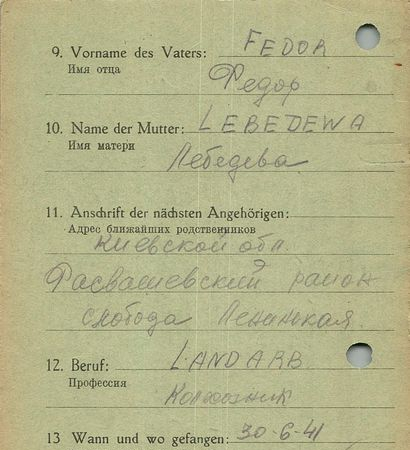 9. Vorname des Vaters: FEDOR
Имя отца
Федор
10. Name der Mutter: LEBEDEWA
Имя матери
Лебедева
11. Anschrift der nächsten Angehörigen:
Адрес ближайших родственников
Киевской обл.
район
слобода Ленинская
12. Beruf: LANDARB.
Профессия
Колхозник
13 Wann und wo gefangen: 30-6-41